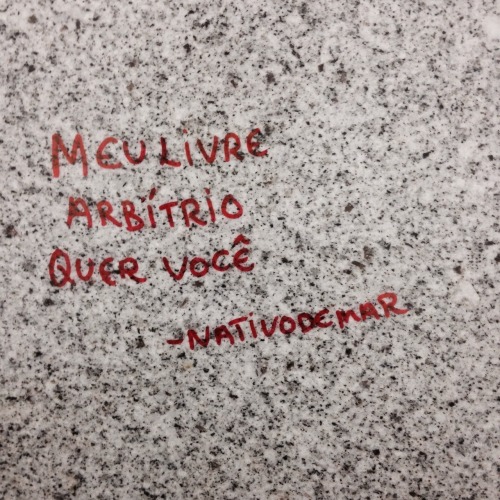 MEU LIVRE
ARBÍTRIO
QUER VOCÊ
-NATIVODEMAR